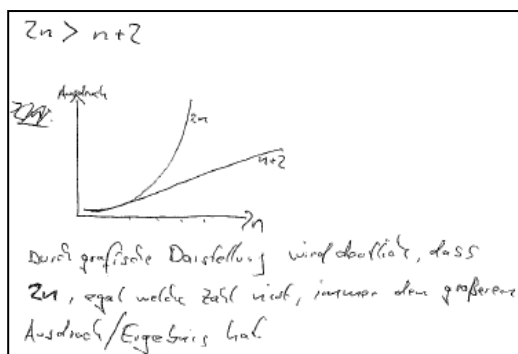 2n > n+2
Ausdruck
2n
n+2
n
Durch grafische Darstellung wird deutlich, dass
2n, egal welche Zahl nicht, immer den größeren
Ausdruck/Ergebnis hat.